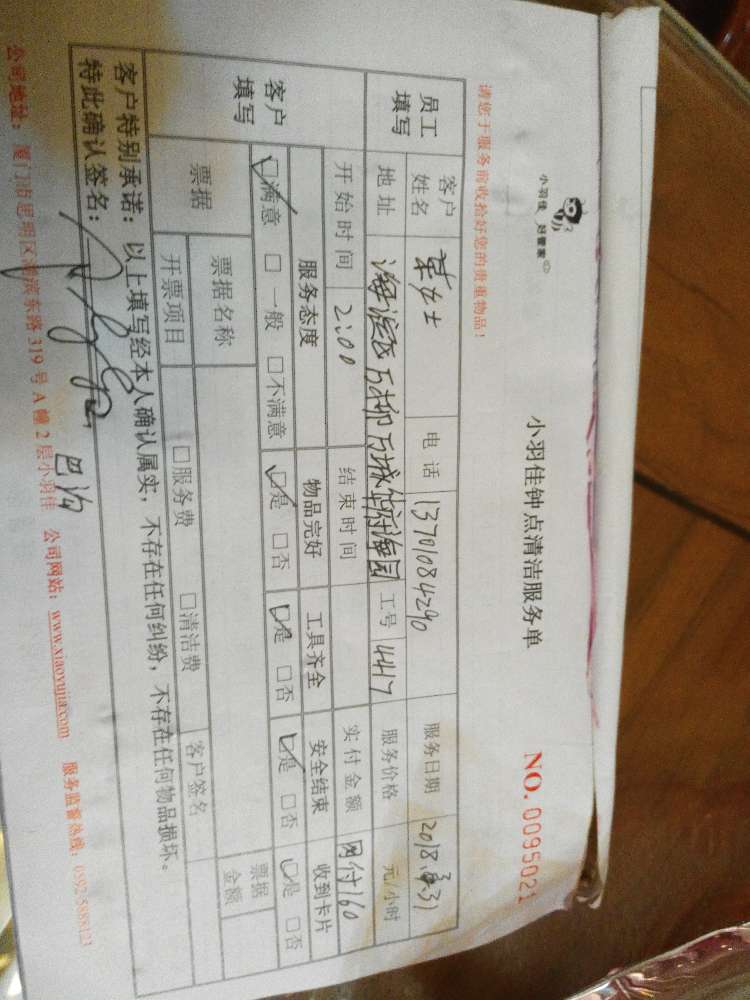 小羽佳 好管家
小羽佳钟点清洁服务单
NO. 0095021
请您于服务前收拾好您的贵重物品！
员工填写
客户姓名 女士 电话 13701084290 服务日期 2018.
地址 海淀区万柳万城华府海园 工号 4417 服务价格 元/小时
开始时间 2:00 结束时间 实付金额 网付160
客户填写
服务态度 物品完好 工具齐全 安全结束 收到卡片
☑满意 □一般 □不满意 ☑是 □否 ☑是 □否 ☑是 □否 ☑是 □否
票据 票据名称 票据金额
开票项目 □服务费 □清洁费 客户签名
客户特别承诺：以上填写经本人确认属实，不存在任何纠纷，不存在任何物品损坏。
特此确认签名： 巴沟
公司地址：厦门市思明区湖滨东路319号A幢2层小羽佳 公司网站：www.xiaoyujia.com 服务监督热线：0592-5888121